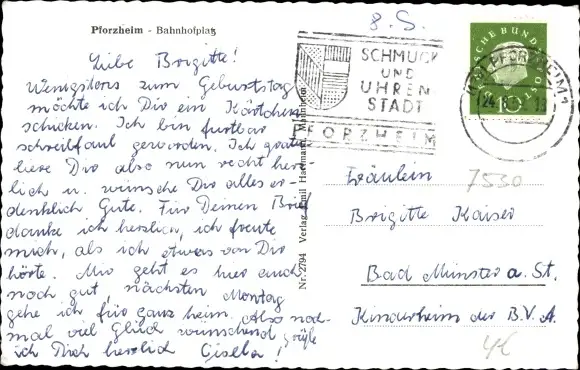 8. S.
Pforzheim - Bahnhofplatz
Liebe Brigitte!
Wenigstens zum Geburtstag
möchte ich Dir ein Kärtchen
schicken. Ich bin furtbar
schreibfaul geworden. Ich gratu
liere Dir also nun recht herz-
lich u. wünsche Dir alles er-
denklich Gute. Für Deinen Brief
danke ich herzlich, ich freute
mich, als ich etwas von Dir
hörte. Mir geht es hier auch
noch gut nächsten Montag
gehe ich für ganz heim. Also noch-
mal viel Glück wünschend grüße
ich Dich herzlich Gisela!
Nr. 2794 Verlag Emil Hartmann, Mannheim
SCHMUCK
UND
UHREN
STADT
PFORZHEIM
PFORZHEIM 1
24
Fräulein
7530
Brigitte Kaiser
Bad Münster a. St.
Kinderheim der B.V.A.
4€